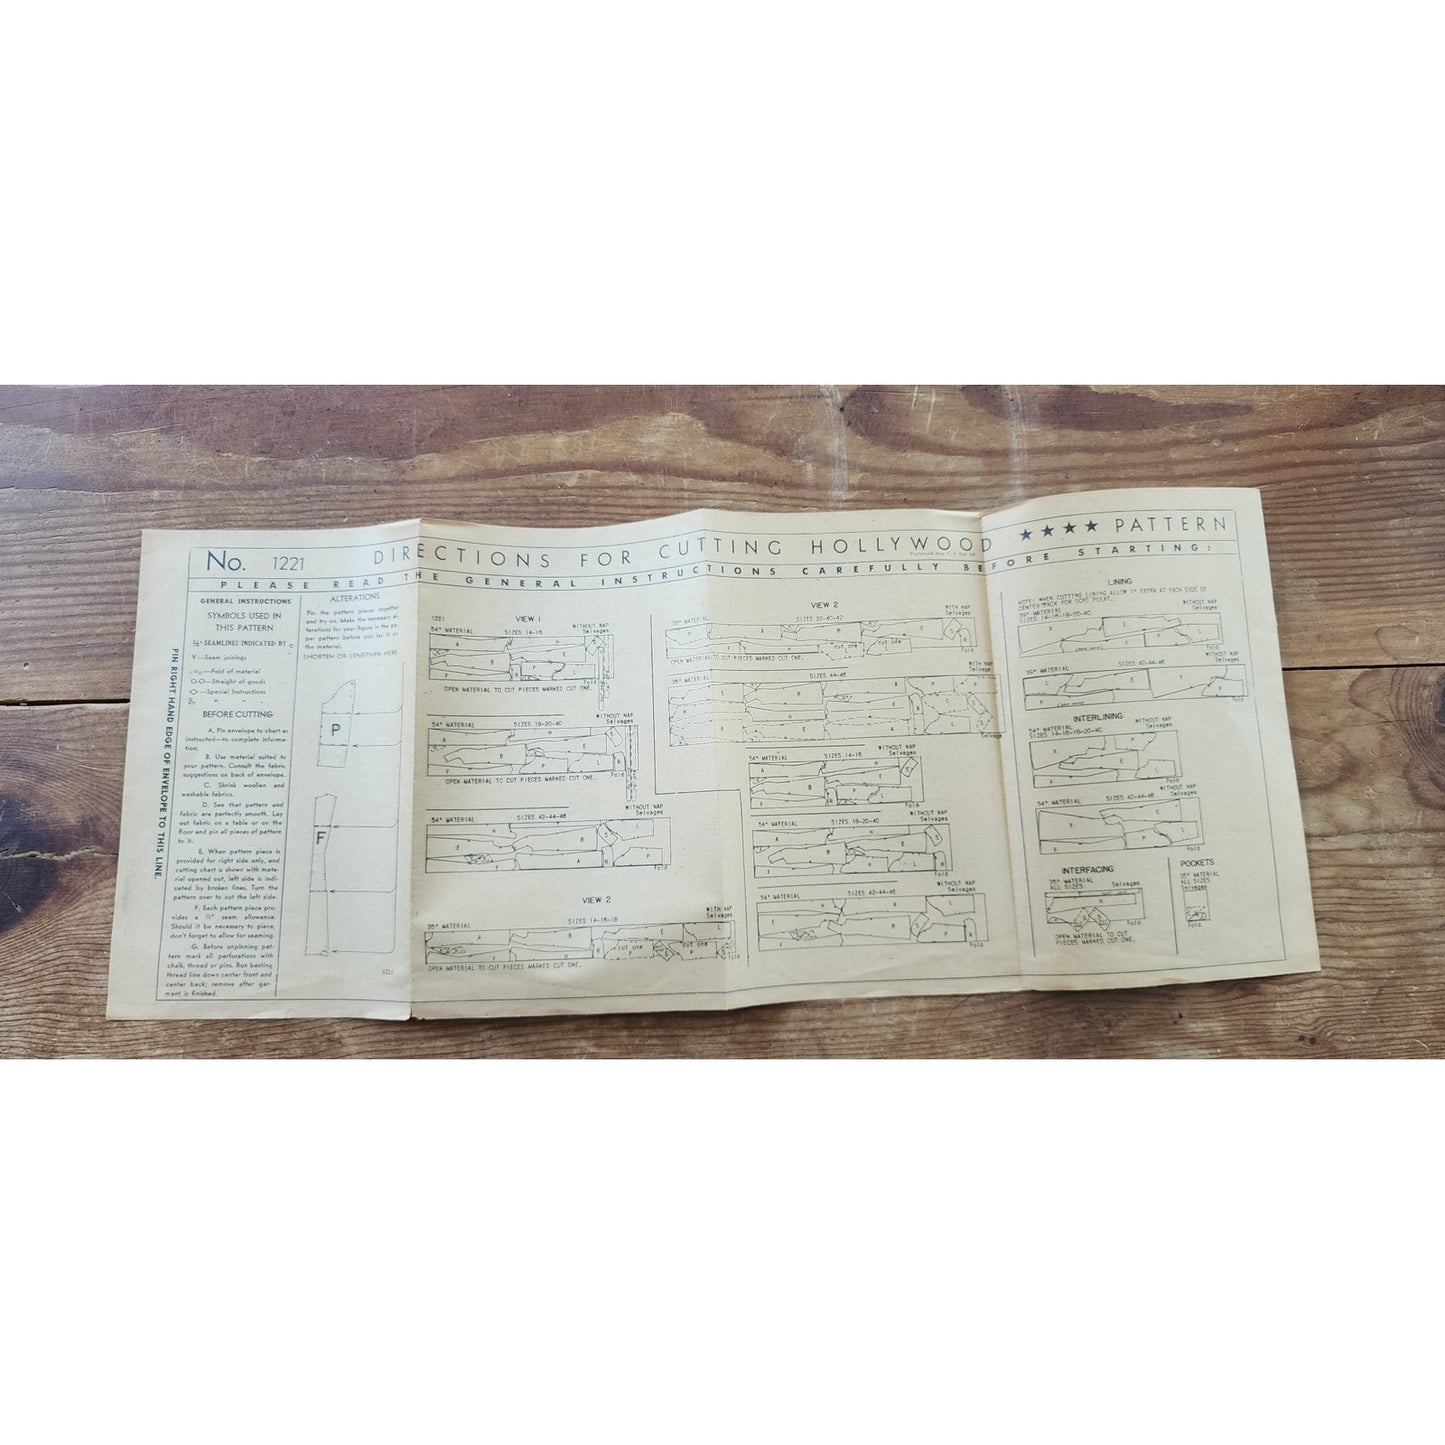 No. 1221 DIRECTIONS FOR CUTTING HOLLYWOOD ★★★★ PATTERN
PLEASE READ THE GENERAL INSTRUCTIONS CAREFULLY BEFORE STARTING:
PIN RIGHT HAND EDGE OF ENVELOPE TO THIS LINE.
GENERAL INSTRUCTIONS
SYMBOLS USED IN
THIS PATTERN
½" SEAMLINES INDICATED BY
V —Seam joinings
—Fold of material
O-O—Straight of goods
◇—Special Instructions
BEFORE CUTTING
A. Pin envelope to chart as
instructed—to complete informa-
tion.
B. Use material suited to
your pattern. Consult the fabric
suggestions on back of envelope.
C. Shrink woolen and
washable fabrics.
D. See that pattern and
fabric are perfectly smooth. Lay
out fabric on a table or on the
floor and pin all pieces of pattern
to it.
E. When pattern piece is
provided for right side only, and
cutting chart is shown with mate-
rial opened out, left side is indi-
cated by broken lines. Turn the
pattern over to cut the left side.
F. Each pattern piece pro-
vides a ½" seam allowance.
Should it be necessary to piece,
don't forget to allow for seaming.
G. Before unpinning pat-
tern mark all perforations with
chalk, thread or pins. Run basting
thread line down center front and
center back; remove after gar-
ment is finished.
ALTERATIONS
Pin the pattern pieces together
and try on. Make the necessary al-
terations for your figure in the pa-
per pattern before you lay it on
the material.
SHORTEN OR LENGTHEN HERE
P
F
1221
1221
VIEW 1
54" MATERIAL SIZES 14-16 WITHOUT NAP
Selvages
Fold
OPEN MATERIAL TO CUT PIECES MARKED CUT ONE.
54" MATERIAL SIZES 18-20-40 WITHOUT NAP
Selvages
Fold
OPEN MATERIAL TO CUT PIECES MARKED CUT ONE.
54" MATERIAL SIZES 42-44-46 WITHOUT NAP
Selvages
Fold
VIEW 2
35" MATERIAL SIZES 14-16-18 WITH NAP
Selvages
cut one cut one
Fold
OPEN MATERIAL TO CUT PIECES MARKED CUT ONE.
VIEW 2
35" MATERIAL SIZES 20-40-42 WITH NAP
Selvages
cut one cut one
Fold
OPEN MATERIAL TO CUT PIECES MARKED CUT ONE.
35" MATERIAL SIZES 44-46 WITH NAP
Selvages
54" MATERIAL SIZES 14-16 WITHOUT NAP
Selvages
Fold
54" MATERIAL SIZES 18-20-40 WITHOUT NAP
Selvages
Fold
54" MATERIAL SIZES 42-44-46 WITHOUT NAP
Selvages
Fold
LINING
NOTE: WHEN CUTTING LINING ALLOW 1" EXTRA AT EACH SIDE OF
CENTER BACK FOR SOFT PLEAT.
39" MATERIAL
SIZES 14-16-18-20-40 WITHOUT NAP
Selvages
Fold
39" MATERIAL SIZES 42-44-46 WITHOUT NAP
Selvages
Fold
INTERLINING
54" MATERIAL
SIZES 14-16-18-20-40 WITHOUT NAP
Selvages
Fold
54" MATERIAL SIZES 42-44-46 WITHOUT NAP
Selvages
Fold
INTERFACING
35" MATERIAL
ALL SIZES Selvages
Fold
OPEN MATERIAL TO CUT
PIECES MARKED CUT ONE.
POCKETS
35" MATERIAL
ALL SIZES
Selvages
Fold